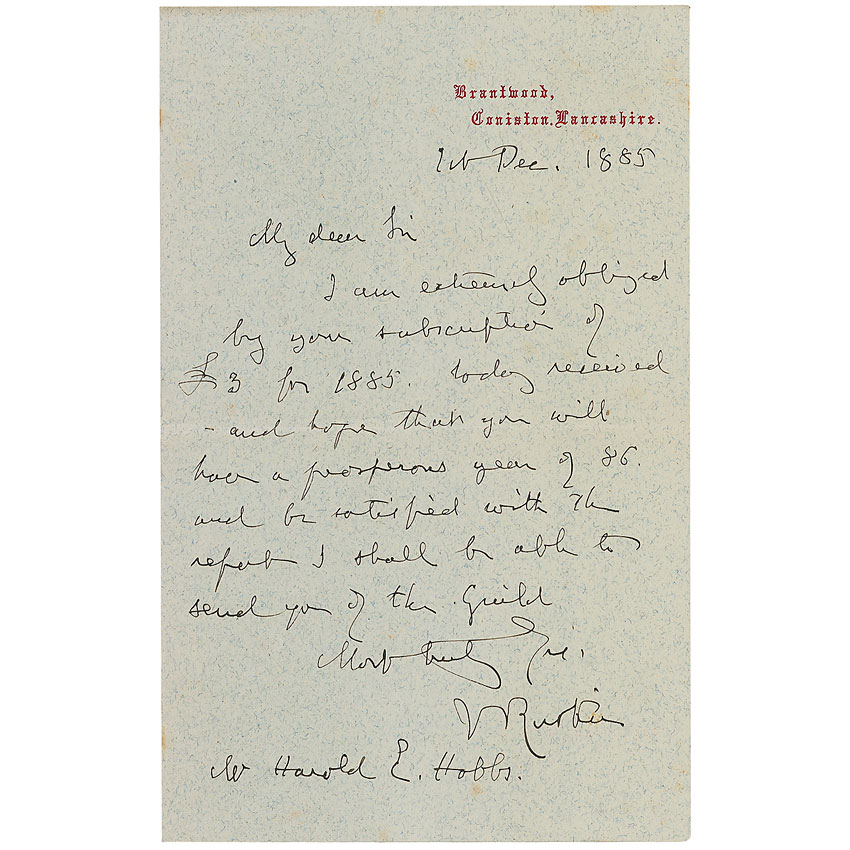 Brantwood,
Coniston. Lancashire.
1st Dec. 1885
My dear Sir
I am extremely obliged
by your subscription of
£3 for 1885. today received
- and hope that you will
have a prosperous year of 86.
and be satisfied with the
report I shall be able to
send you of the Guild
Most truly Yrs.
J Ruskin
Mr Harold E. Hobbs.